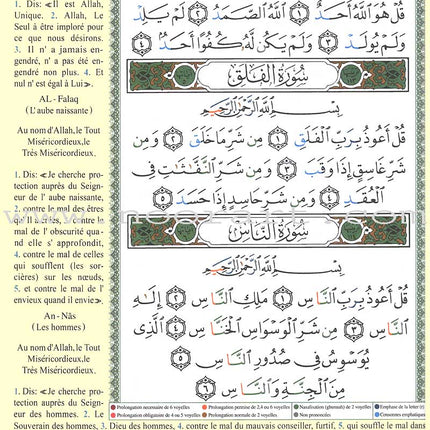 1. Dis: «Il est Allah,
Unique. 2. Allah, Le
Seul à être imploré pour
ce que nous désirons.
3. Il n' a jamais en-
gendré, n' a pas été en-
gendré non plus. 4. Et
nul n' est égal à Lui».
AL - Falaq
(L'aube naissante)
Au nom d'Allah, le Tout
Miséricordieux, le
Trés Miséricordieux.
1. Dis: «Je cherche pro-
tection auprès du Seigneur
de l' aube naissante,
2. contre le mal des êtres
mal de l' obscurité quand
elle s' approfondit,
4. contre le mal de celles
qui soufflent (les sor-
cières) sur les nœuds,
5. et contre le mal de l'
envieux quand il envie».
An - Nâs
(Les hommes)
Au nom d'Allah, le Tout
Miséricordieux, le
Trés Miséricordieux.
1. Dis: «Je cherche pro-
tection auprès du Seign-
eur des hommes. 2. Le
Souverain des hommes, 3. Dieu des hommes, 4. contre le mal du mauvais conseiller, furtif, 5. qui souffle le mal dans
قُلْ هُوَ اللَّهُ أَحَدٌ ١ اللَّهُ الصَّمَدُ ٢ لَمْ يَلِدْ
وَلَمْ يُولَدْ ٣ وَلَمْ يَكُن لَّهُ كُفُوًا أَحَدٌ ٤
سُورَةُ الْفَلَقِ
بِسْمِ اللَّهِ الرَّحْمَٰنِ الرَّحِيمِ
قُلْ أَعُوذُ بِرَبِّ الْفَلَقِ ١ مِن شَرِّ مَا خَلَقَ ٢ وَمِن
شَرِّ غَاسِقٍ إِذَا وَقَبَ ٣ وَمِن شَرِّ النَّفَّاثَاتِ فِي
الْعُقَدِ ٤ وَمِن شَرِّ حَاسِدٍ إِذَا حَسَدَ ٥
سُورَةُ النَّاسِ
بِسْمِ اللَّهِ الرَّحْمَٰنِ الرَّحِيمِ
قُلْ أَعُوذُ بِرَبِّ النَّاسِ ١ مَلِكِ النَّاسِ ٢ إِلَٰهِ
النَّاسِ ٣ مِن شَرِّ الْوَسْوَاسِ الْخَنَّاسِ ٤ الَّذِي
يُوَسْوِسُ فِي صُدُورِ النَّاسِ ٥
مِنَ الْجِنَّةِ وَالنَّاسِ ٦
Prolongation nécessaire de 6 voyelles Prolongation permise de 2,4 ou 6 voyelles Nasalisation (ghunnah) de 2 voyelles Emphase de la lettre (r)
Prolongation obligatoire de 4 ou 5 voyelles Prolongation normale de 2 voyelles Non prononcées Consonnes emphatiques